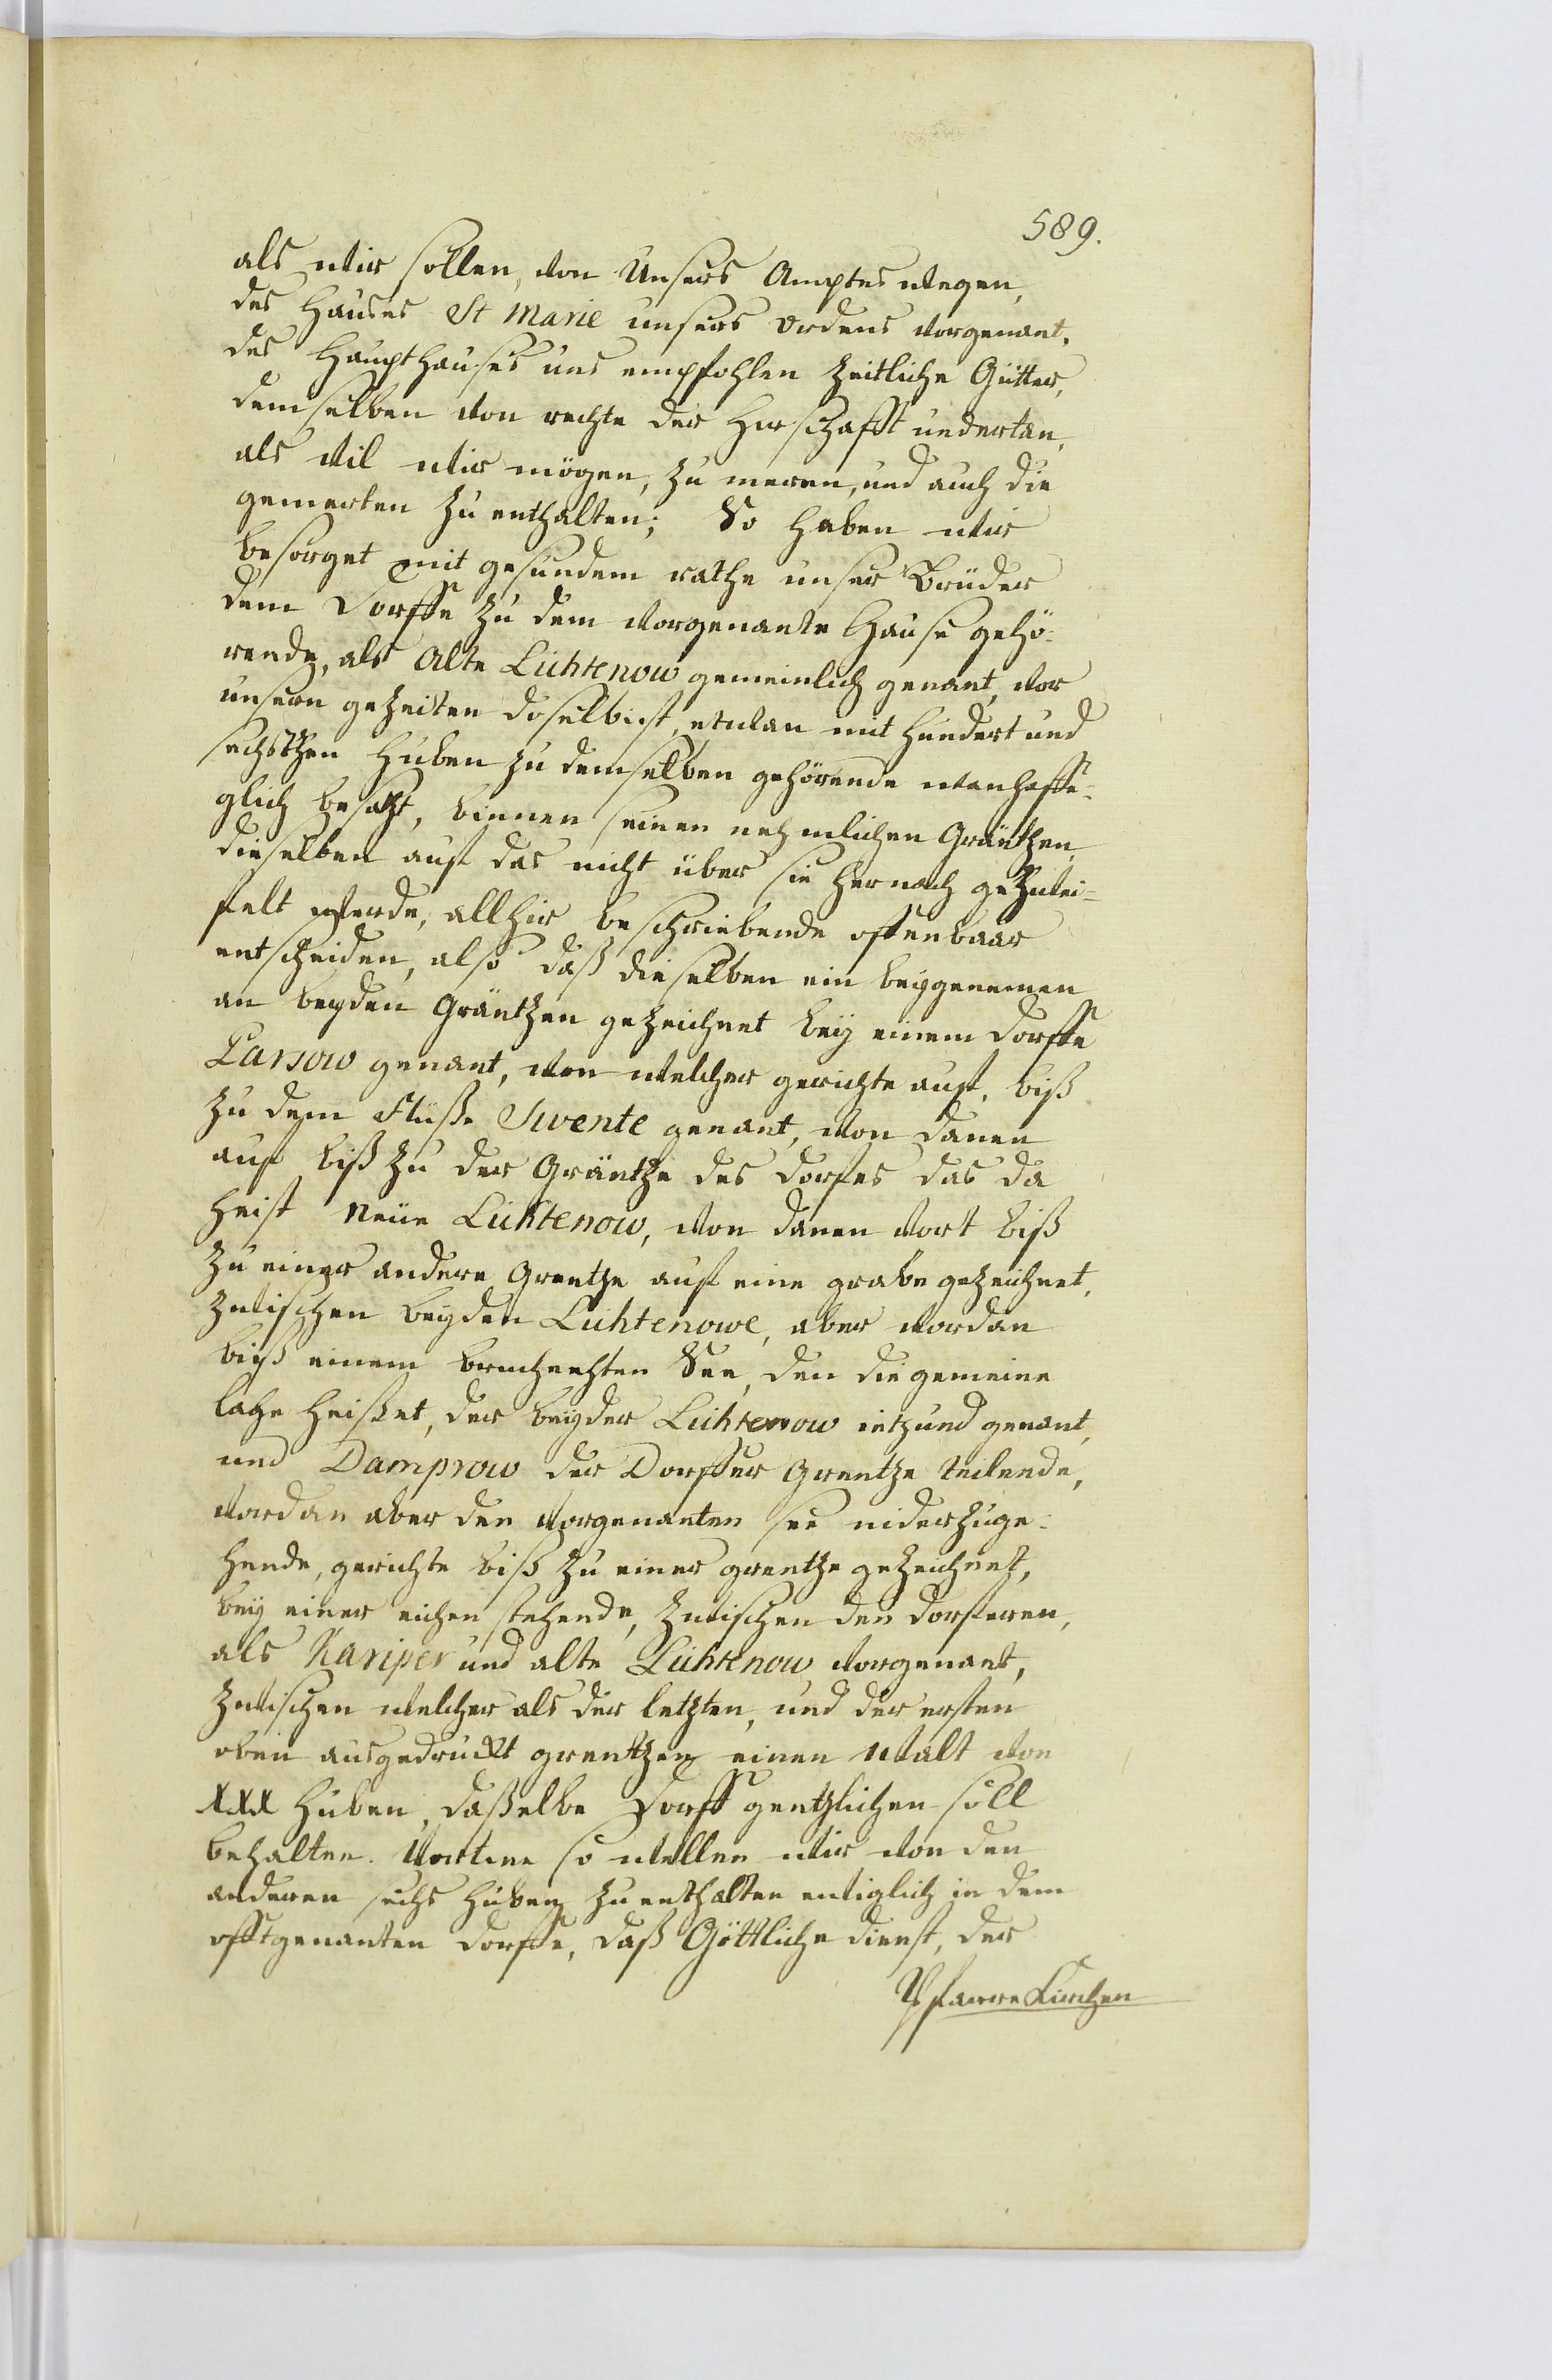 589.
als wir sollen, von Unsers Amptes wegen,
des Hauses St Marie unsers Ordens vorgenant,
des Haupthauses uns empfohlen zeitliche Gütter,
demselben von rechte der Herschafft undertan,
als vil wir mögen, zu meren, und auch die
gemerten zu enthalten; So haben wir
besorget mit gesundem rathe unser Brüder
dem Dorffe zu dem vorgenante Hause gehö-
rende, als Alte Lichtenow gemeinlich genant, vor
unsern gezeiten doselbist, etwan mit hundert und
sechszehen Huben zu demselben gehörende wanhaffti-
glich besatzt, binnen seinen nehmlichen Gräntzen,
dieselben auf das nicht über sie hernach gezwei-
felt werde, allhir beschriebende offenbaar
entscheiden, also daß dieselben ein beygenemen
an beyden Gräntzen gezeichnet bey einem Dorffe
Parsow genant, von welcher gerichte auf, biß
zu dem Flusse Swente genant, von danen
auf biß zu der Gräntze des Dorfes das da
heist Neue Lichtenow, von danen vort biß
zu einer andere Grentze auf eine grabe gezeichnet,
zwischen beyden Lichtenowe, aber vordan
biß einem bruchechten See, den die gemeine
lage heisset, der beyder Lichtenow ietzund genant,
und Damprow der Dorffer Grentze teilende,
vordan aber den vorgenanten see niderzuge-
hende, gerichte biß zu einer grentze gezeichnet,
bey einer eichen stehende, zwischen den dorferen,
als Kariper und alte Lichtenow vorgenant,
zwischen welcher als der letzten, und der ersten
oben ausgedruckt grentzen einen Walt von
XXX Huben, dasselbe Dorff gentzlichen soll
behalten. Vortme so wellen wir von den
anderen sechs Huben zu enthalten ewiglich in dem
offtgenanten Dorffe, daß Göttliche dienst, der
PfarreKirchen